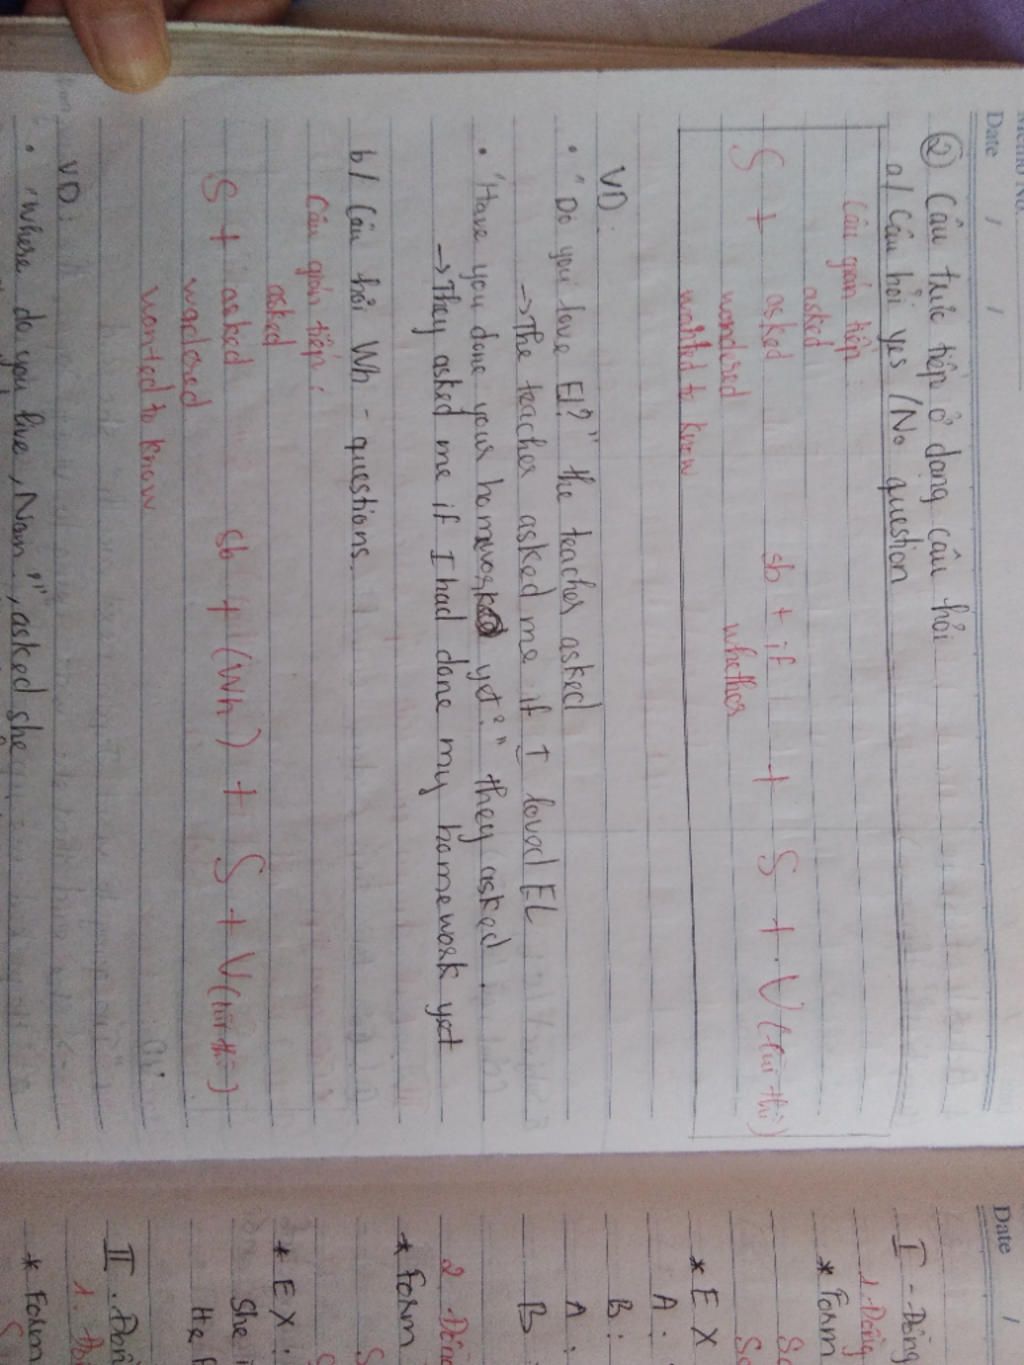 Date / /
② Câu trực tiếp ở dạng câu hỏi
a/ Câu hỏi yes /No question
Câu gián tiếp
asked
S + asked sb + if + S + V (lùi thì)
wondered whether
wanted to know
VD:
• "Do you love EL?" the teacher asked
→ The teacher asked me if I loved EL
• "Have you done your homework yet?" they asked.
→ They asked me if I had done my homework yet
b/ Câu hỏi Wh - questions.
Câu gián tiếp:
asked
S + asked sb + (Wh) + S + V (lùi thì)
wadered
wanted to know
VD:
• "where do you live, Nam?", asked she
Date /
I - Động
1. Động
* Form
* EX
A:
B:
A:
B
2. Động
* Form
* EX:
She
He
II. Động
1. Động
* Form